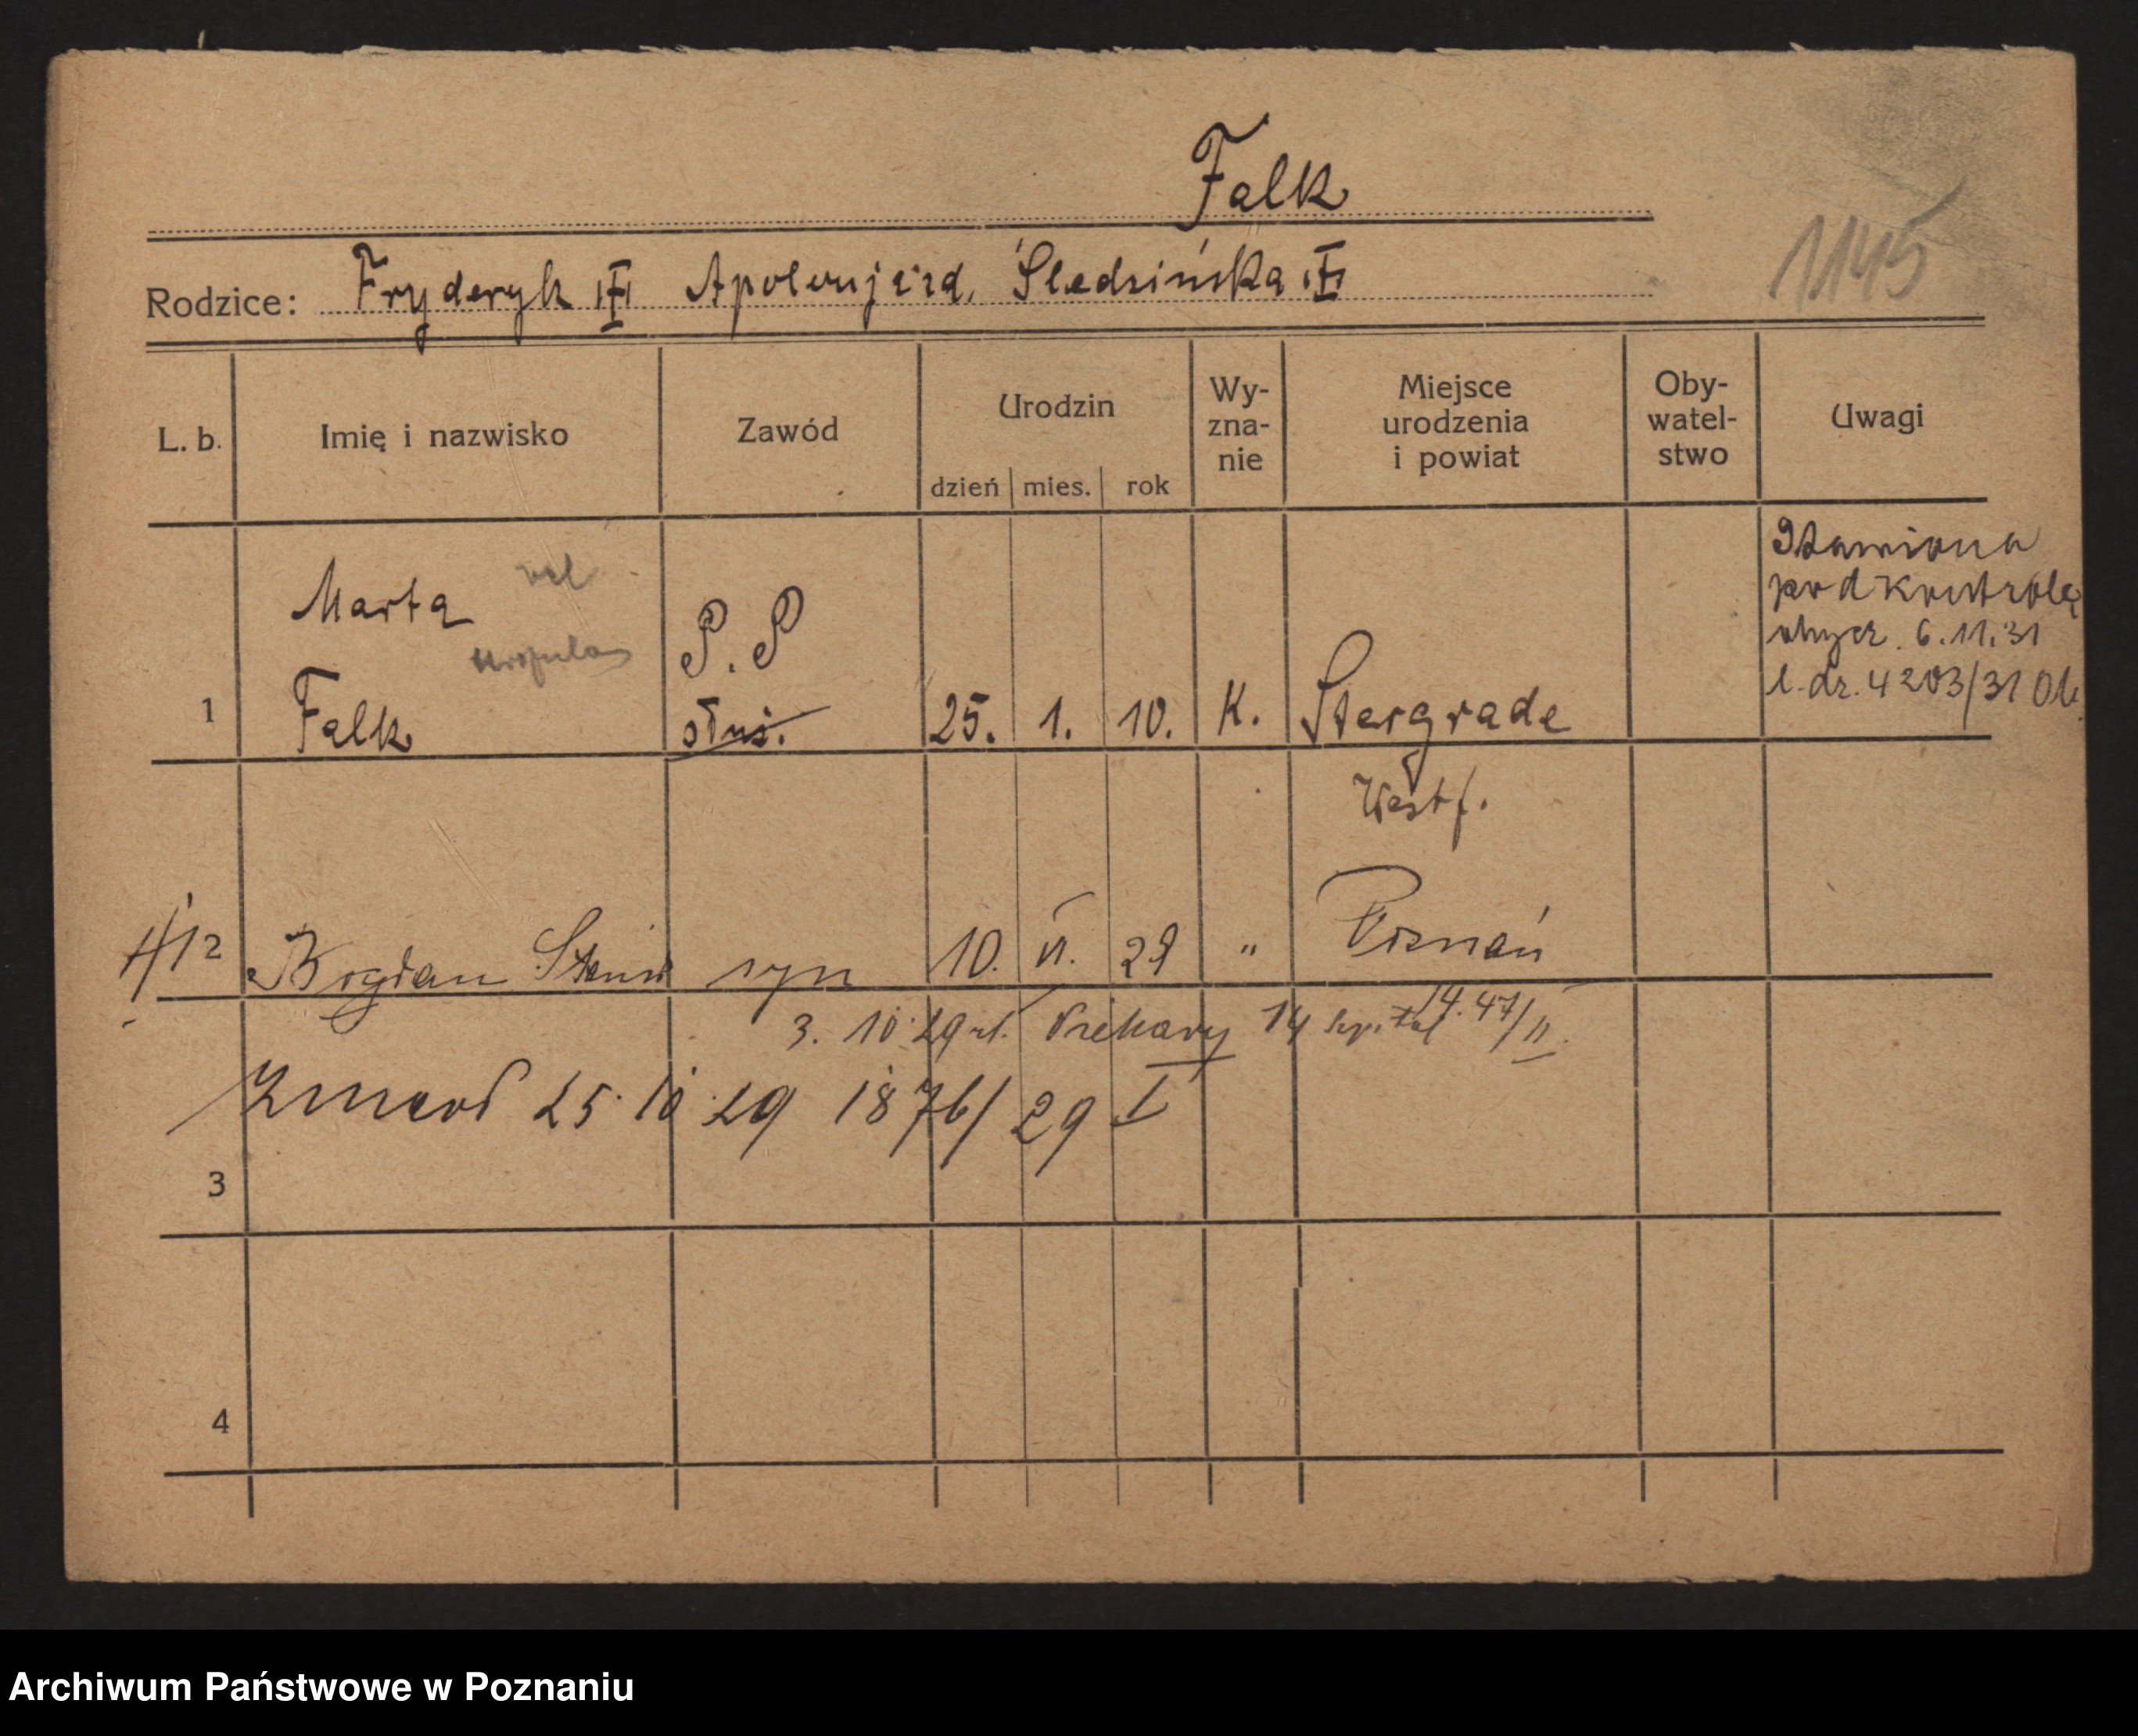 Falk
1145
Rodzice: Fryderyk Apolonja zd. Śledzińska
L. b. Imię i nazwisko Zawód Urodzin Wy-zna-nie Miejsce urodzenia i powiat Oby-watel-stwo Uwagi
dzień mies. rok
Stawiona
pod kontrolę
obycz. 6.11.31
l. dz. 4203/31 Ob.
vel
Marta
Urszula
P. P
1 Falk służ. 25. 1. 10. K. Stergrade
Westf.
2 Bogdan Stanisł syn 10. VI. 29 " Poznań
3. 10. 29 r. Piekary 14 szpital 14. 47/II.
Zmarł 25. 10. 29 1876/29 I
3
4
Archiwum Państwowe w Poznaniu